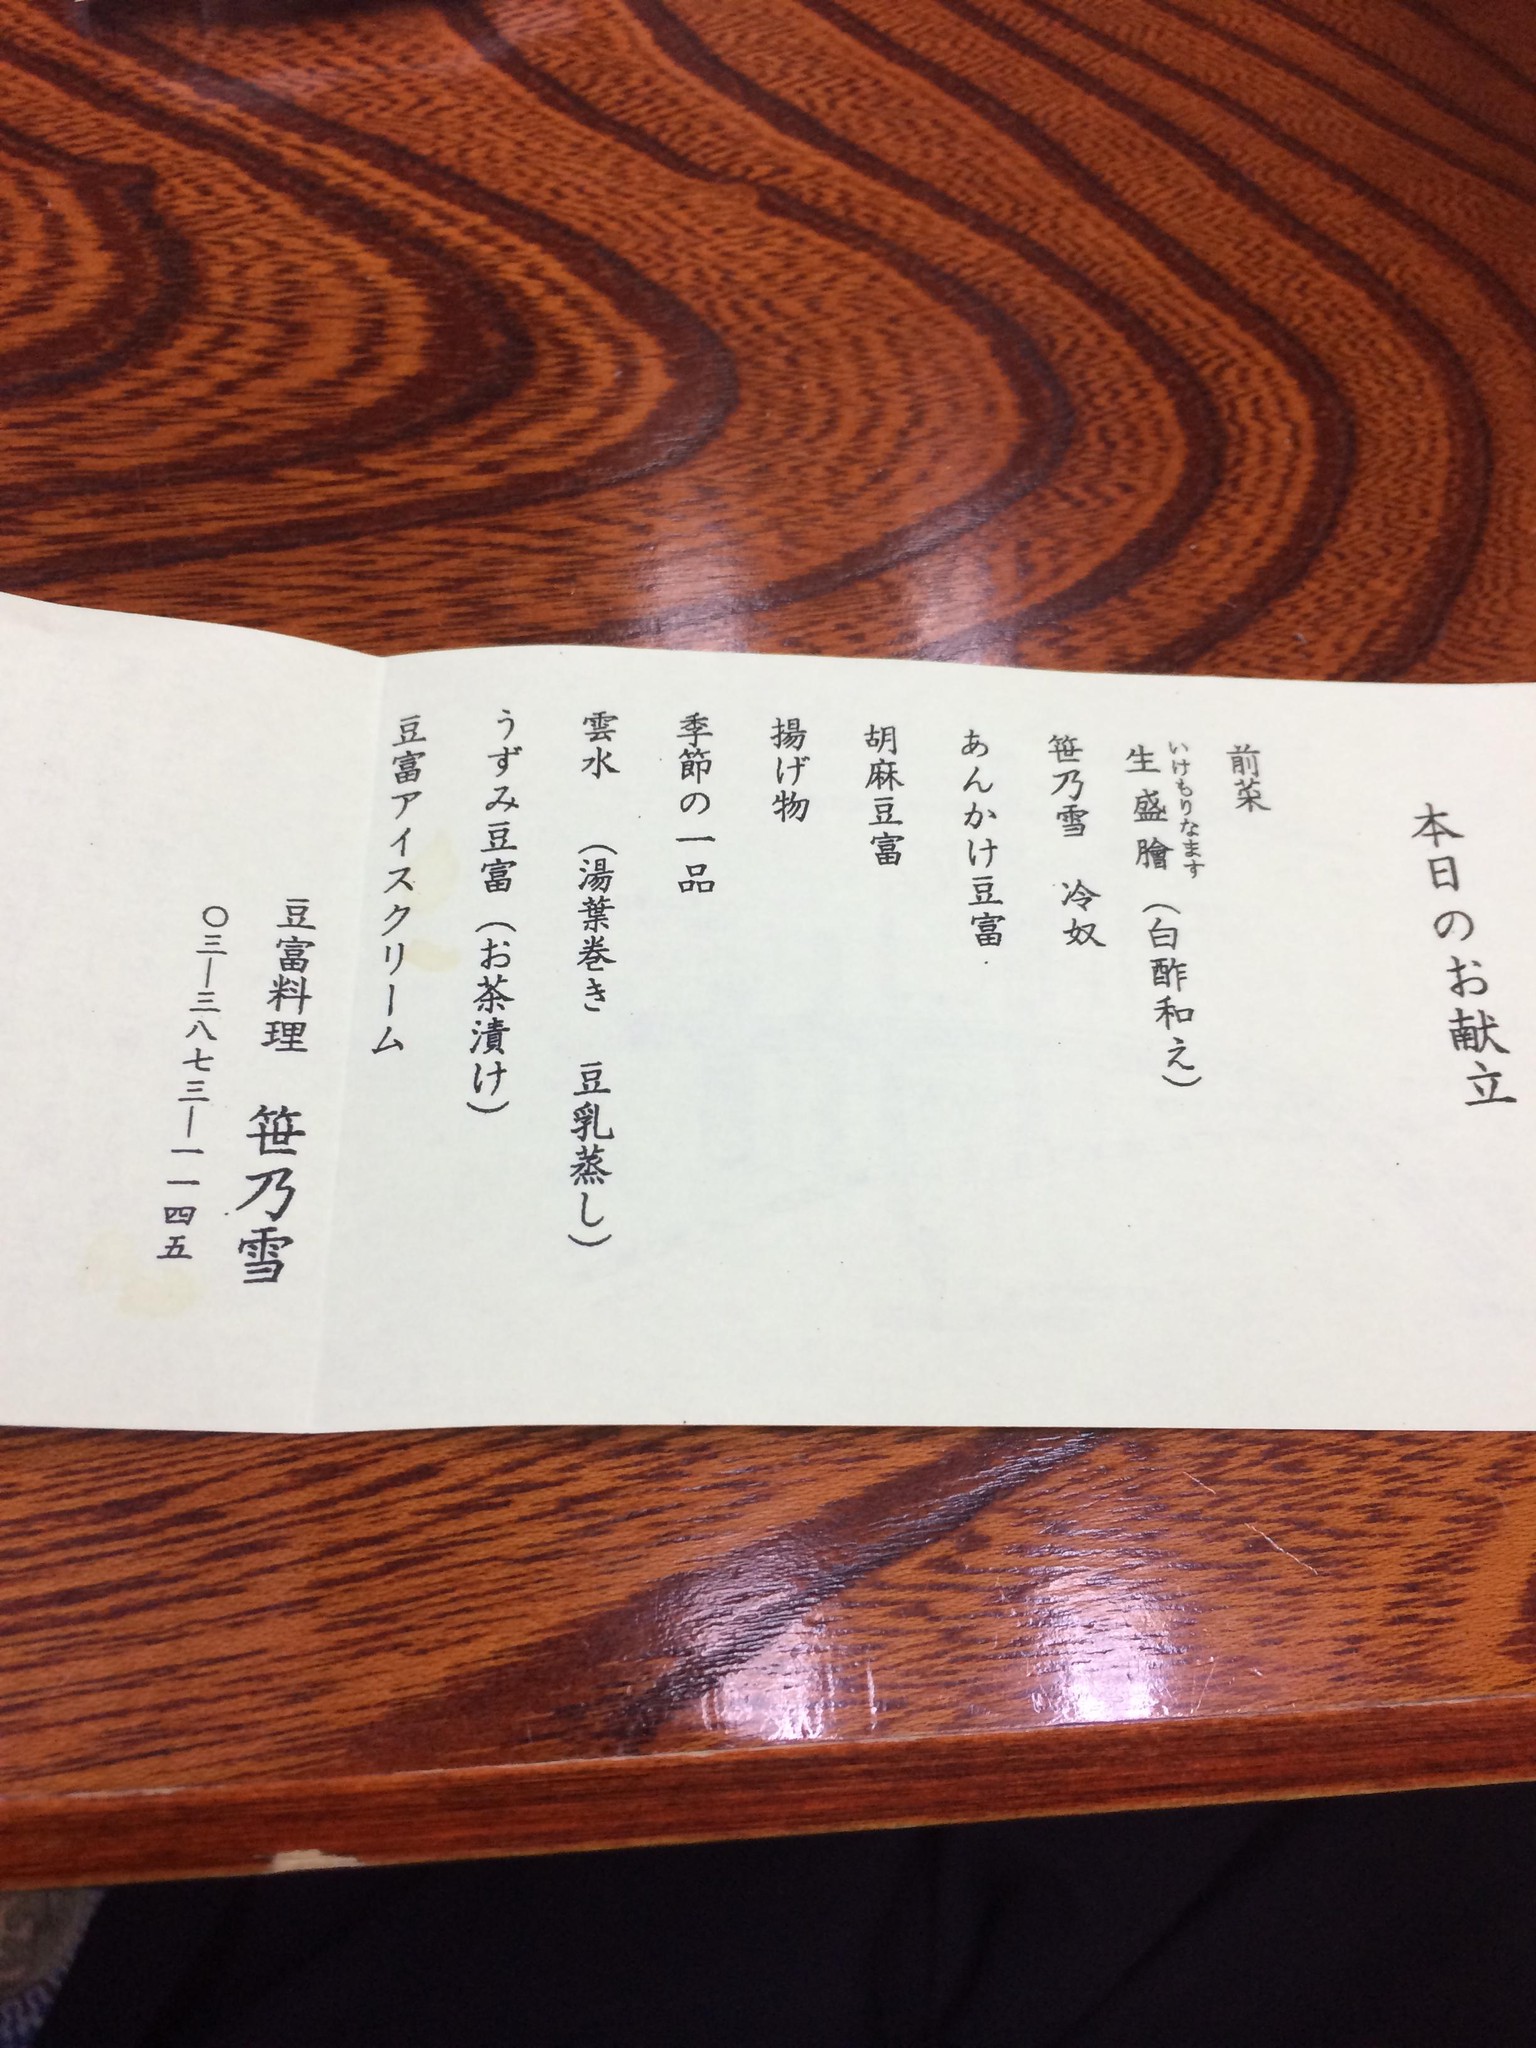 本日のお献立
前菜
いけもりなます
生盛膾（白酢和え）
笹乃雪　冷奴
あんかけ豆富
胡麻豆富
揚げ物
季節の一品
雲水　（湯葉巻き　豆乳蒸し）
うずみ豆富（お茶漬け）
豆富アイスクリーム
豆富料理　笹乃雪
〇三―三八七三―一一四五